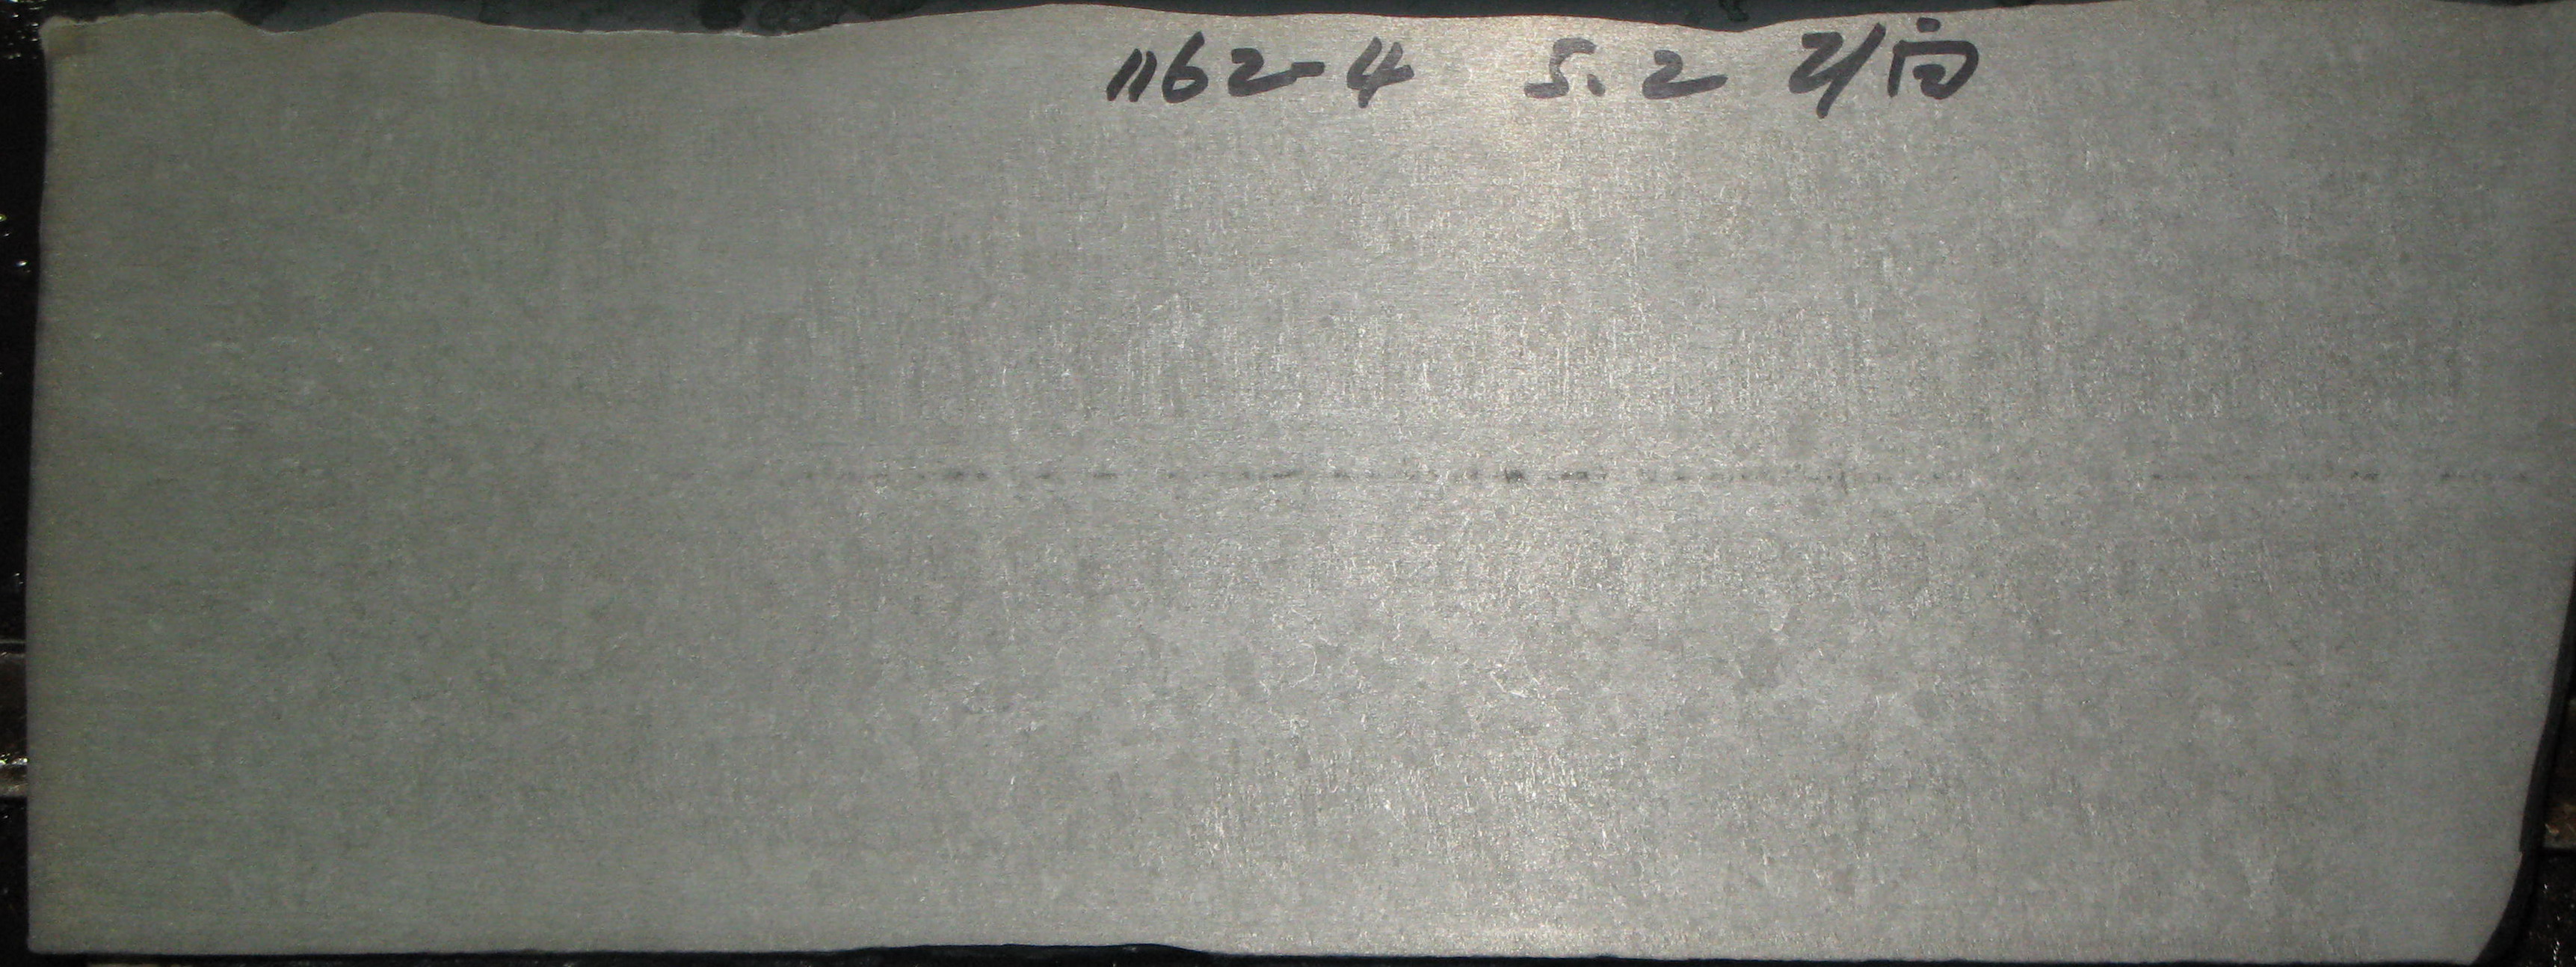 1162-4 5.2 2/向